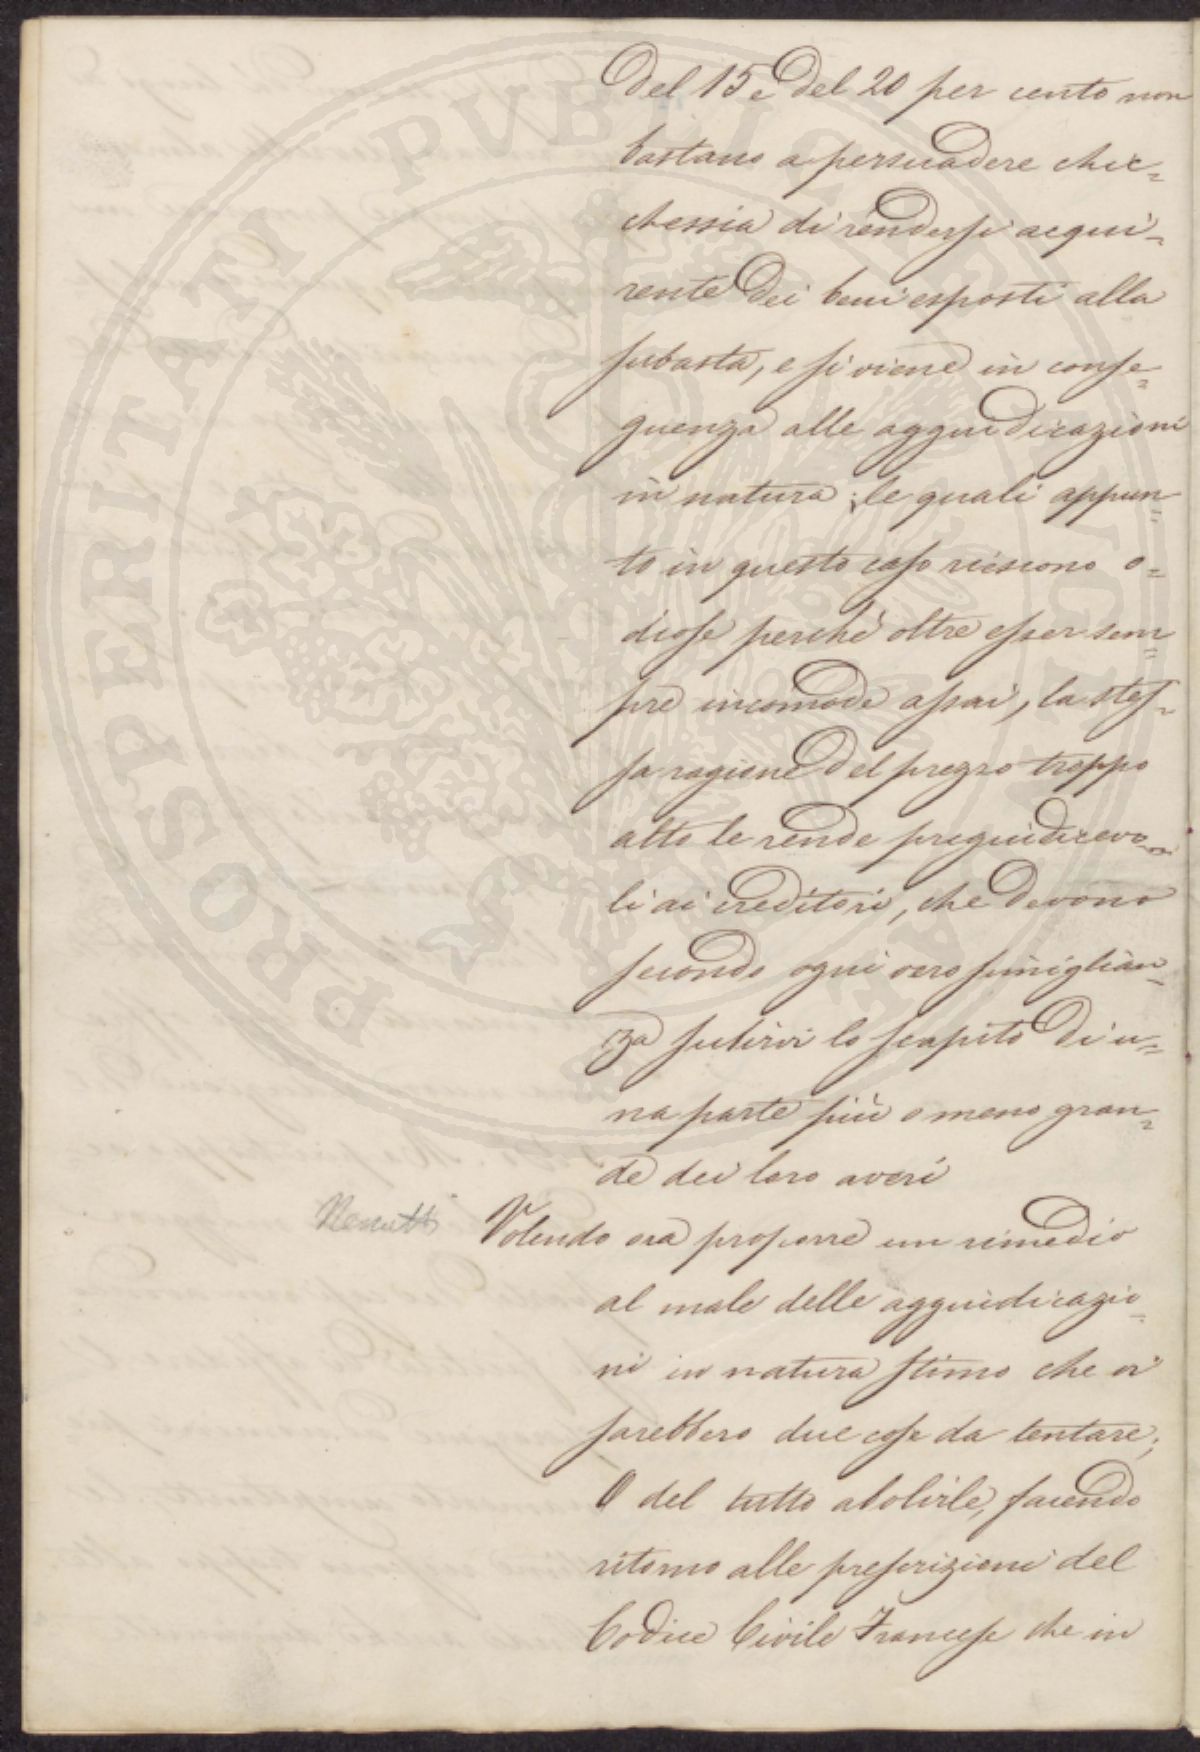 del 15 e del 20 per cento non
bastano a persuadere chic=
chessia di rendersi acqui=
rente dei beni esposti alla
subasta, e si viene in conse=
guenza alle aggiudicazioni
in natura; le quali appun=
to in questo caso riescono o=
diose perché oltre esser sem=
pre incomode assai, la stes=
sa ragione del prezzo troppo
alto le rende pregiudicevo=
li ai creditori, che devono
secondo ogni vero simiglian=
za subirvi lo scapito di u=
na parte più o meno gran=
de dei loro averi
Volendo ora proporre un rimedio
al male delle aggiudicazio=
ni in natura stimo che vi
sarebbero due cose da tentare;
O del tutto abolirle, facendo
ritorno alle prescrizioni del
Codice Civile Francese che in
PROSPERITATI PUBLICAE AUGENDAE